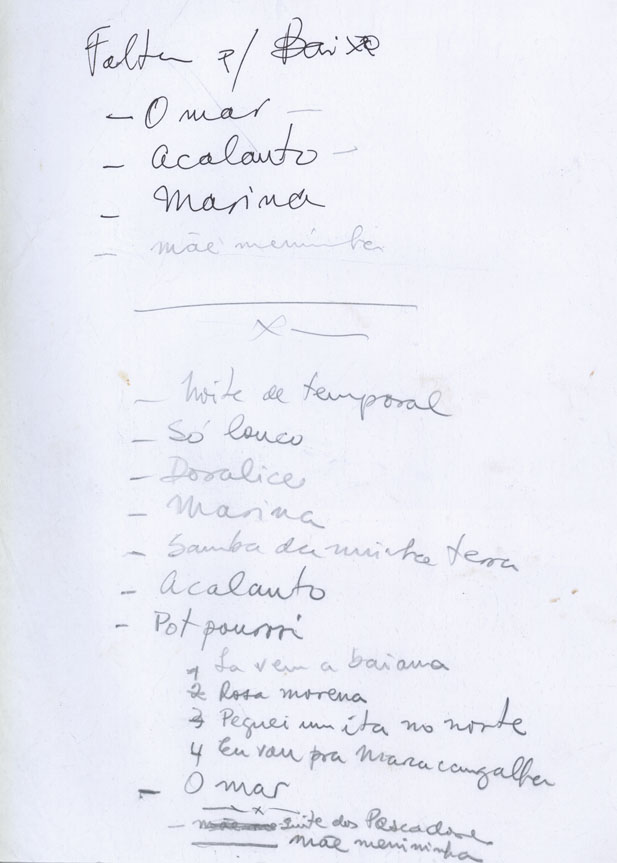 Faltam p/ Baixo
- O mar -
- Acalanto -
- Marina
- mãe meninha
x
- Noite de temporal
- Só louco
- Doralice
- Marina
- Samba da minha terra
- Acalanto
- Pot pourri
1 La vem a baiana
2 Rosa morena
3 Peguei um ita no norte
4 Eu vou pra Maracangalha
- O mar
x
- Suite dos Pescadores
mãe menininha